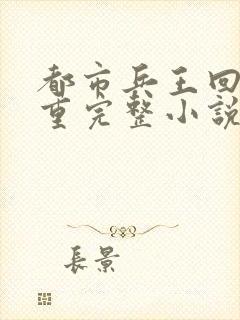 都市兵王回
重完整小説
長景